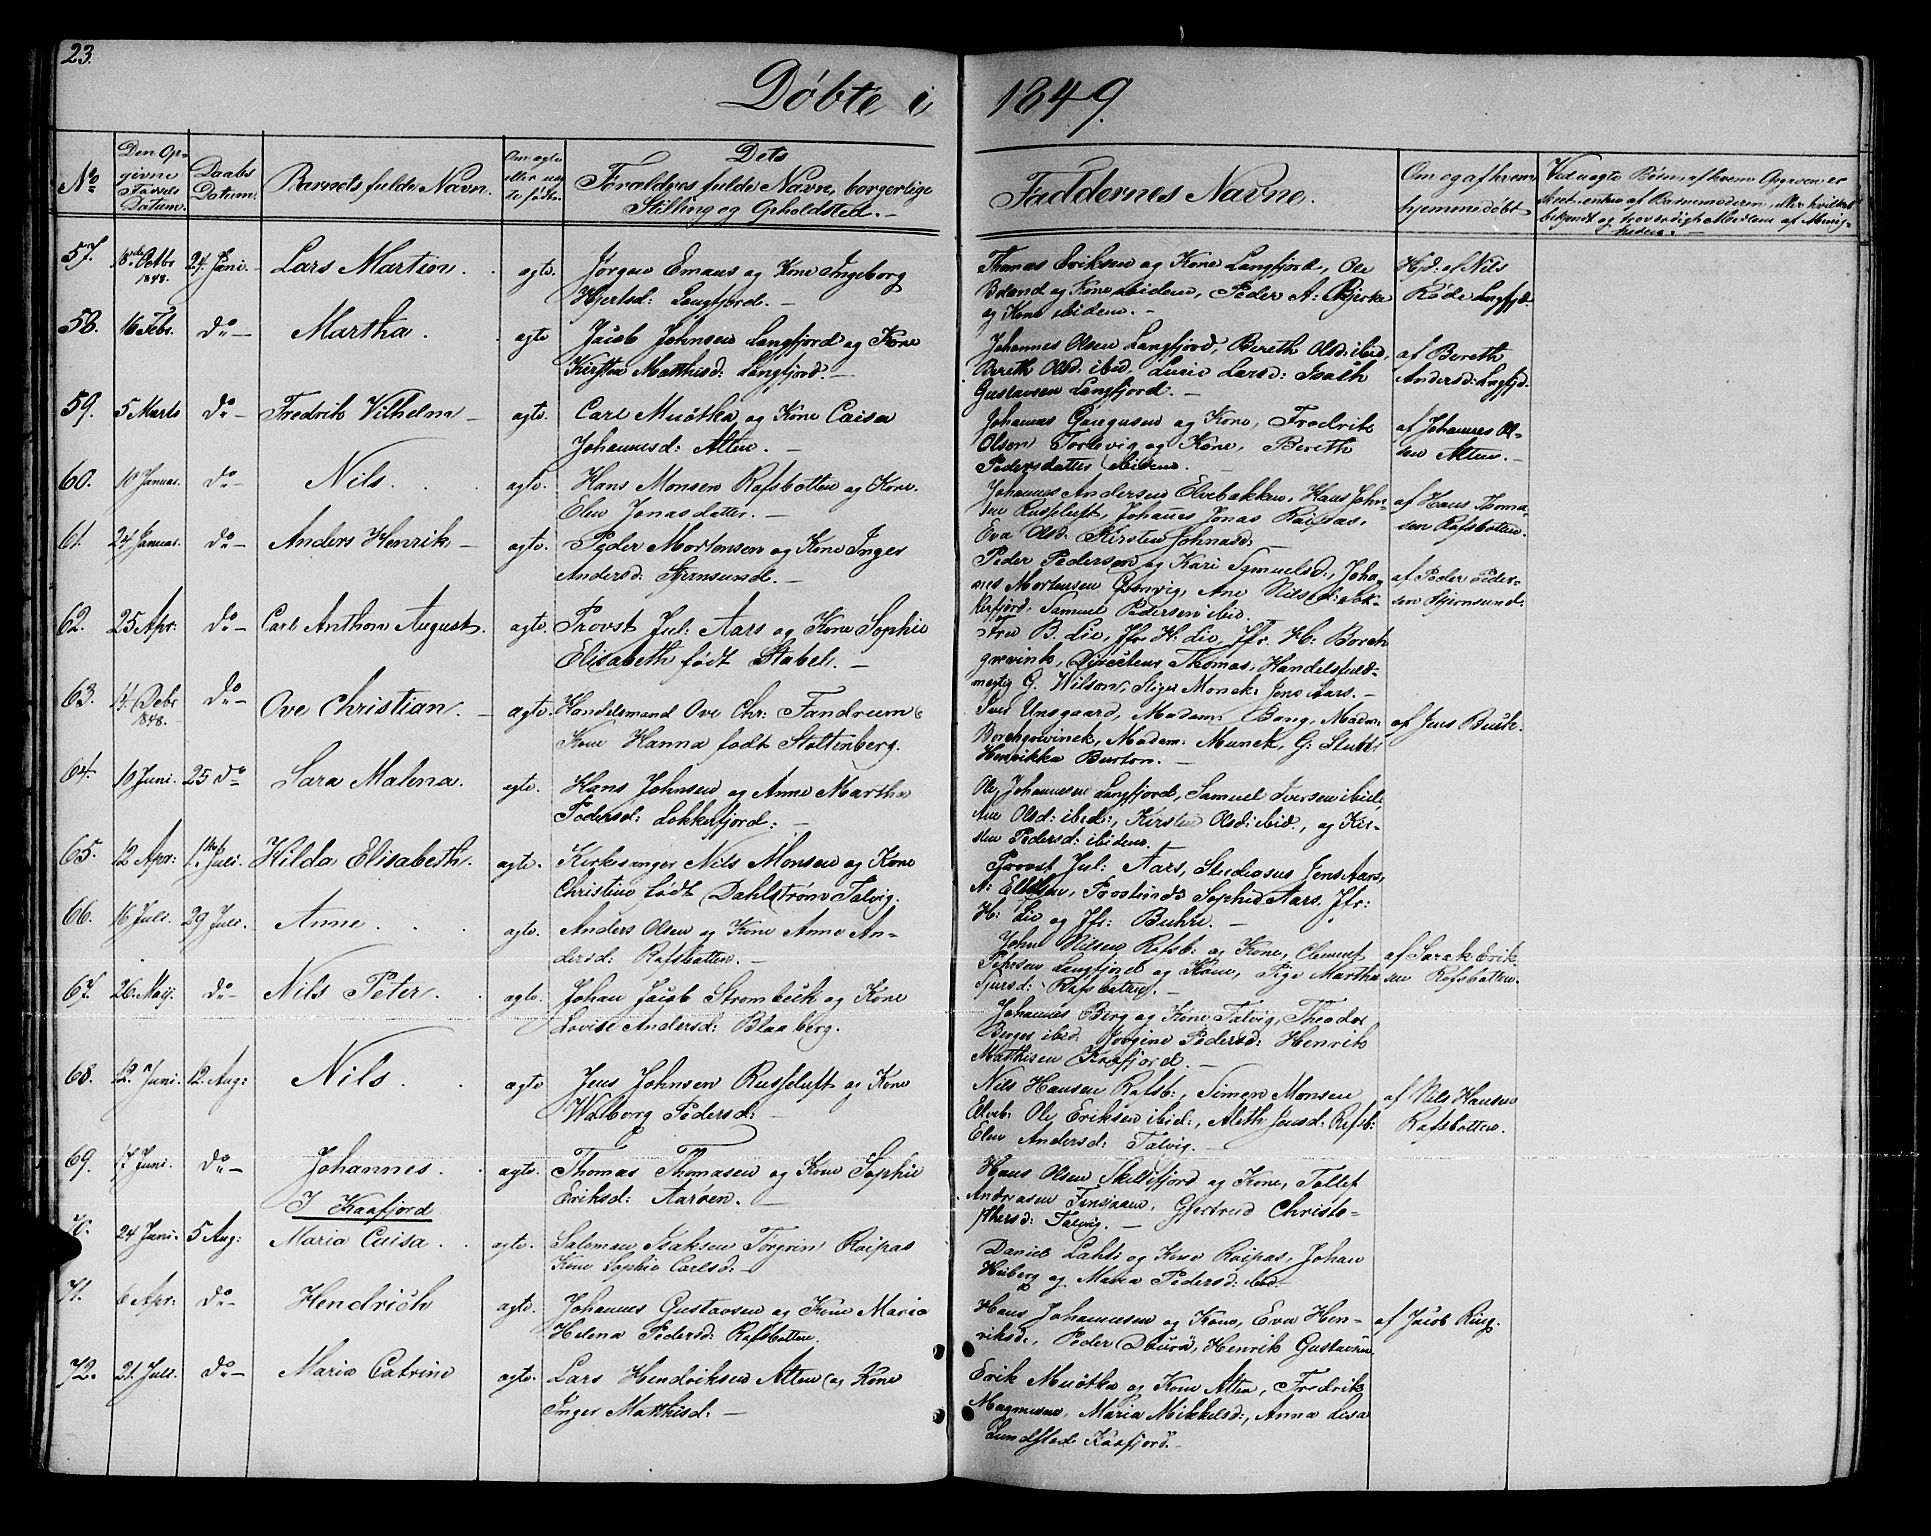 23.
Døbte i 1849.
No
Den Op-
givne
Fødsels
Datum.
Daabs
Datum.
Barnets fulde Navn.
Om ægte
eller uæg
te født.
Dets
Forældres fulde Navne, borgerlige
Stilling og Opholdsted. –
Faddernes Navne.
Om og af hvem
hjemmedøbt
Ved uægte Børn, af hvem Opgaven er
skeet, enten af Barnemoderen, eller hvilket
bekjendt og troværdigt Medlem af Menig-
heden. –
57. 18de Octbr 1848. 24 Juni. Lars Martion. ægte. Jørgen Emaus og Kone Ingeborg
Hjertsd: Langfjord. –
Thomas Eriksen og Kone Langfjord, Ole
Boland og Kone ibidem, Peder A: Bjerke
og Kone ibidem. –
Hjd: af Nils
Røde Langfjd.
58. 16 Febr. do – Martha. ægte Jacob Johnsen Langfjord og Kone
Kirsten Matthisd: Langfjord. –
Johannes Olsen Langfjord, Bereth Olsd: ibid,
Bereth Olsd: ibid, Lucie Larsd: Isach
Gustavsen Langfjord. –
af Bereth
Andersd: Langfjd.
59. 5 Marts do – Fredrik Vilhelm – ægte. Carl Muötka og Kone Caisa
Johannesd: Alten. –
Johannes Gregusen og Kone, Fredrik
Olsen Torlevig og Kone, Bereth
Pedersdatter ibidem. –
af Johannes Ol-
sen Alten. –
60. 10 Januar. do – Nils. ægte. Hans Monsen Rafsbotten og Kone
Elen Jonasdatter. –
Johannes Andersen Elvebakken, Hans John-
sen Russeluft, Johanes Jonas Raipas,
Eva Olsd: Kirsten Johnasd:
af Hans Thoma-
sen Rafsbotten.
61. 24 Januar. do – Anders Henrik – ægte. Peder Mortensen og Kone Inger
Andersd: Stjernsund. –
Peder Pederson og Kari Samuelsd:, Johan-
nes Mortensen Grønvig, Ane Nilsd: Lok-
kerfjord, Samuel Pedersen ibid.
af Peder Peder-
sen Stjernsund.
62. 25 Apr. do – Carl Anthon August. ægte. Provst Jul: Aars og Kone Sophie
Elisabeth født Stabel. –
Fru B. Lie, Jfr. H: Lie, Jfr. H: Borch
grevink, Directeur Thomas, Handelsfuld-
mægtig G. Wilson, Stiger Monck, Jens Aars. –
63. Debr 1848. do – Ove Christian. – ægte. Handelsmand Ove Chr: Fandrem &
Kone Hanna født Stoltenberg.
Unsgaard, Madam: Bang, Madam:
Borchgrevinck, Madam: Munck, G: Stub:
Henrikka Burton. –
af Jens Busk.
64. 10 Juni. 25 do – Sara Malena. ægte. Hans Johnsen og Anne Martha
Pedersd: Lokkerfjord: –
Ole Johannesen Langfjord, Samuel Iversen ibid:,
Ane Olsd: ibid:, Kirsten Olsd: ibid., og Kir-
sten Pedersd: ibidem.
65. 12 Apr: 1. Juli. Hilda Elisabeth. ægte. Kirkesanger Nils Monsen og Kone
Christine født Dahlstrøm Talvig.
Provst Jul: Aars, Studiosus Jens Aars,
A: Ellefsen, Provstinde Sophie Aars. Jfr:
H: Lie og Jfr: Buhre. –
66. 16 Juli. 29 Juli. Anne. ægte. Anders Olsen og Kone Anne An-
dersd: Rafsbotten. –
John Nilsen Rafsb: og Kone, Clement
Pehrsen Langfjord og Kone, Pige Martha
Sjursd: Rafsbotten. –
af Sarak Erik-
sen Rafsbotten.
67. 26 Maij. do – Nils Peter. ægte. Johan Jacob Strombeck og Kone
Lovise Andersd: Blaaberg.
Johannes Berg og Kone Talvig, Theodor
Berger ibid. Jørgine Pedersd: Henrik
Mathisen Kaafjord. –
68. 12. Juni. 12. Aug: Nils. ægte Jens Johnsen Russeluft og Kone
Walborg Pedersd: –
Nils Hansen Rafsb:, Simen Monsen
Elveb: Ole Eriksen ibid:, Aleth Jensd: Rafsb:
Elen Andersd: Talvig. –
af Nils Hansen
Rafsbotten.
69. 17 Juni. do – Johannes. ægte. Thomas Thomasen og Kone Sophie
Eriksd: Aarøen. –
Hans Olsen Skillefjord og Kone, Tollef
Andreasen Finsgam, Gjertrud Christo-
phersd: Talvig. –
I Kaafjord
70. 24 Juni. 5 Aug: Maria Caisa. ægte. Saleman Isaksen Törgrin Raipas
Kone Sophie Carlsd: –
Daniel Lahti og Kone Raipas, Johan
Heiberg og Maria Pedersd: ibid:
71. 6 Apr: do – Hendrich ægte. Johannes Gustavsen og Kone Maria
Helena Pedersd: Rafsbotten.
Hans Johannesen og Kone, Eva Hen-
riksd:, Peder Doura, Henrik Gustavsen
af Jacob Ring.
72. 21. Juli. do – Maria Catrine ægte. Lars Hendriksen Alten og Kone
Inger Matthisd: –
Erik Muötka og Kone Alten, Fredrik
Magnusen, Maria Mikkelsd:, Anna Lisa
Lundsted Kaafjord. –